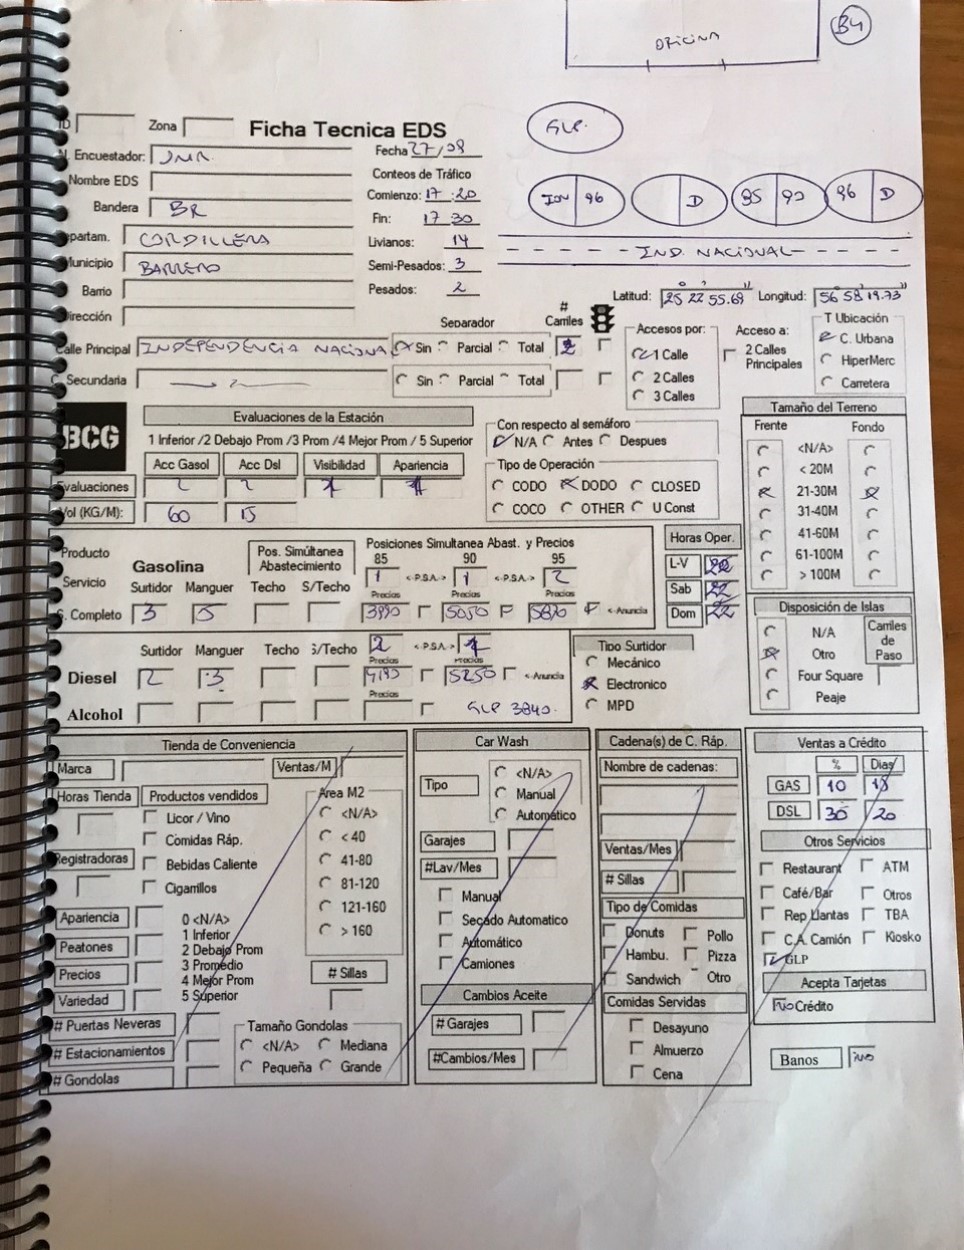 OFICINA
B4
GLP.
ID Zona Ficha Tecnica EDS
N. Encuestador: JMR. Fecha 27/08
Nombre EDS Conteos de Tráfico
Bandera BR Comienzo: 17:20
96 D 95 90 96 D
Fin: 17 30
Departam. CORDILLERA Livianos: 14
IND. NACIONAL
Municipio BARRERO Semi-Pesados: 3
Barrio Pesados: 2
Latitud: 25 22 55.69 Longitud: 56 58 19.73
Dirección
Separador # Carriles Accesos por: Acceso a: T Ubicación
Calle Principal INDEPENDENCIA NACIONAL Sin Parcial Total 2 1 Calle 2 Calles Principales C. Urbana
C. Secundaria Sin Parcial Total 2 Calles HiperMerc
3 Calles Carretera
BCG
Evaluaciones de la Estación
1 Inferior /2 Debajo Prom /3 Prom /4 Mejor Prom / 5 Superior
Acc Gasol Acc Dsl Visibilidad Apariencia
Evaluaciones 2 2
Vol (KG/M): 60 15
Con respecto al semáforo
N/A Antes Despues
Tipo de Operación
CODO DODO CLOSED
COCO OTHER U Const
Tamaño del Terreno
Frente Fondo
<N/A>
< 20M
21-30M
31-40M
41-60M
61-100M
> 100M
Producto Servicio
Gasolina
Pos. Simúltanea Abastecimiento
Posiciones Simultanea Abast. y Precios
85 90 95
1 <-P.S.A.-> 1 <-P.S.A.-> 2
Surtidor Manguer Techo S/Techo Precios Precios Precios
S. Completo 3 5 3990 5050 <-Anuncia
Horas Oper.
L-V
Sab 22
Dom 22
Surtidor Manguer Techo S/Techo 2 <-P.S.A.->
Precios Precios
Diesel 2 3 5250 <-Anuncia
Precios
Alcohol GLP 3840.
Tipo Surtidor
Mecánico
Electronico
MPD
Disposición de Islas
N/A
Otro
Four Square
Peaje
Carriles de Paso
Tienda de Conveniencia
Marca Ventas/M
Horas Tienda Productos vendidos Area M2
Licor / Vino <N/A>
Comidas Ráp. < 40
Registradoras Bebidas Caliente 41-80
Cigarrillos 81-120
121-160
> 160
Apariencia 0 <N/A>
1 Inferior
Peatones 2 Debajo Prom
Precios 3 Promedio
4 Mejor Prom
Variedad 5 Superior
# Sillas
# Puertas Neveras
# Estacionamientos
# Gondolas
Tamaño Gondolas
<N/A> Mediana
Pequeña Grande
Car Wash
Tipo
<N/A>
Manual
Automático
Garajes
#Lav/Mes
Manual
Secado Automatico
Automático
Camiones
Cambios Aceite
# Garajes
#Cambios/Mes
Cadena(s) de C. Ráp.
Nombre de cadenas:
Ventas/Mes
# Sillas
Tipo de Comidas
Donuts Pollo
Hambu. Pizza
Sandwich Otro
Comidas Servidas
Desayuno
Almuerzo
Cena
Ventas a Crédito
% Dias
GAS 10
DSL 30 20
Otros Servicios
Restaurant ATM
Café/Bar Otros
Rep Llantas TBA
C.A. Camión Kiosko
GLP
Acepta Tarjetas
NO Crédito
Banos NO